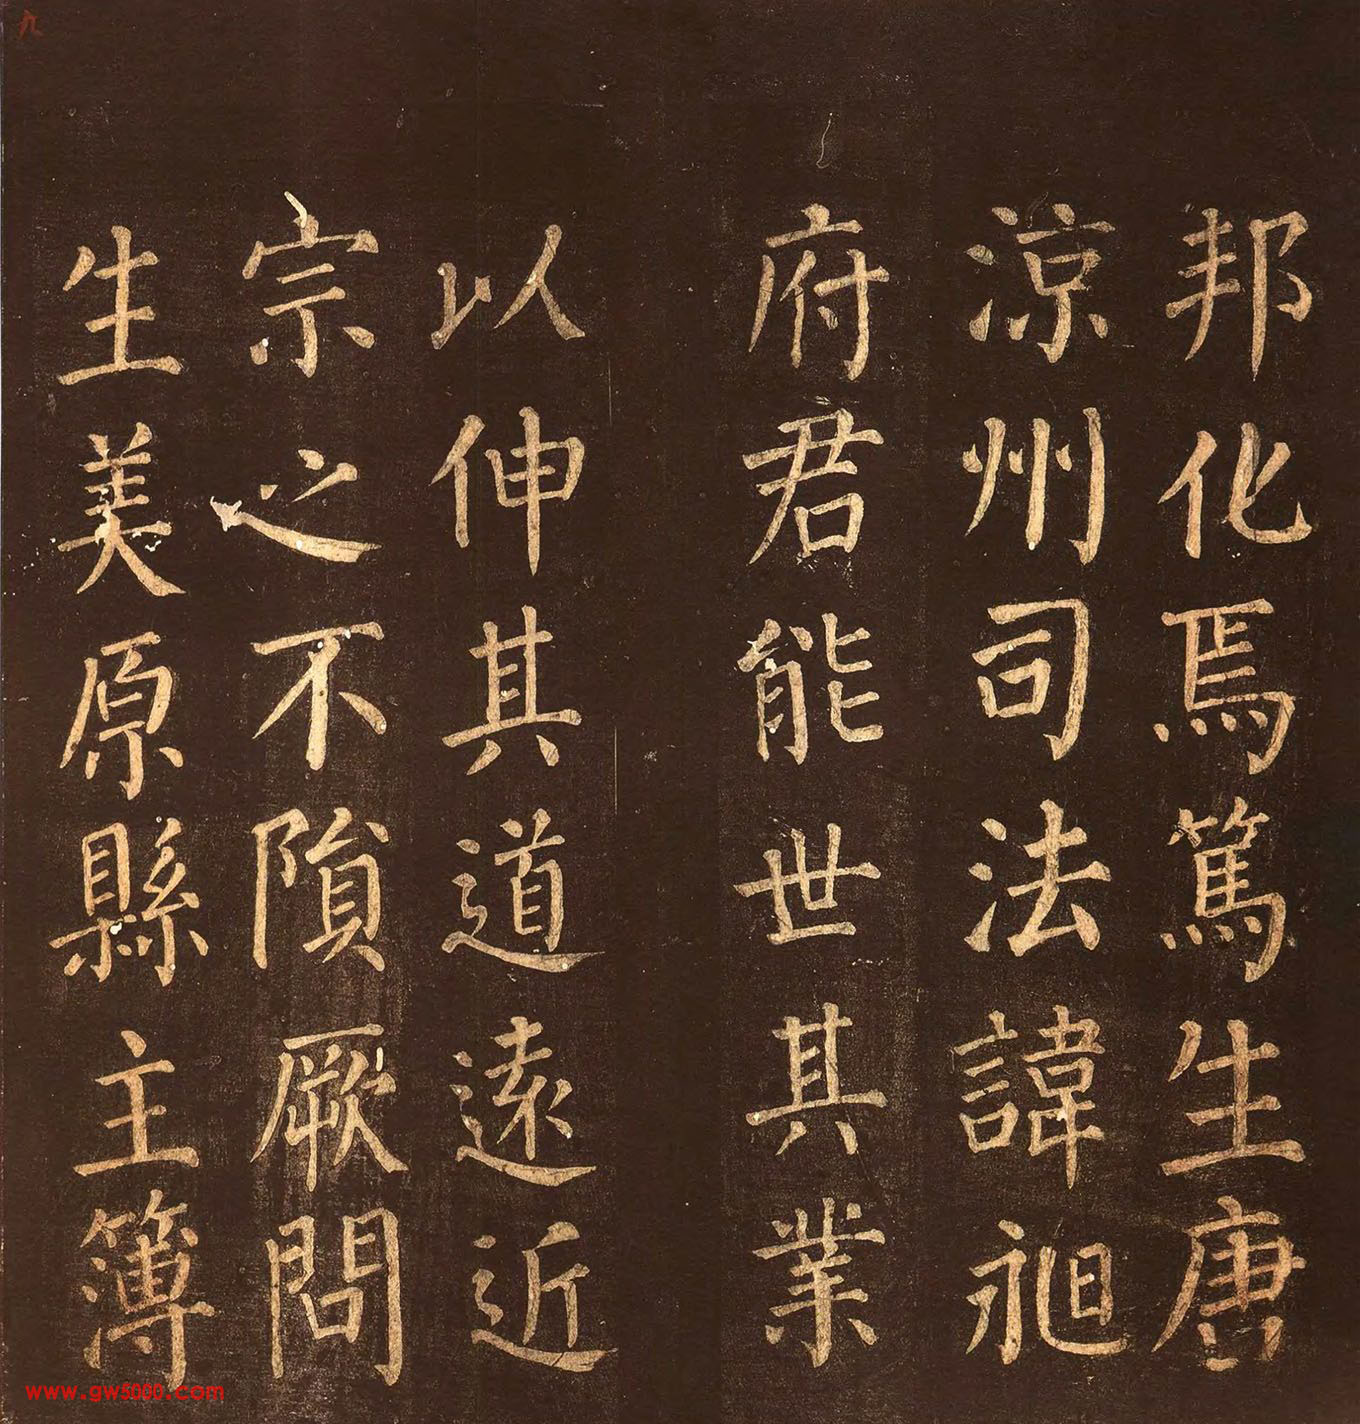 邦化焉篤生唐
涼州司法諱昶
府君能世其業
以伸其道遠近
宗之不隕厥問
生美原縣主簿
九
www.gw5000.com